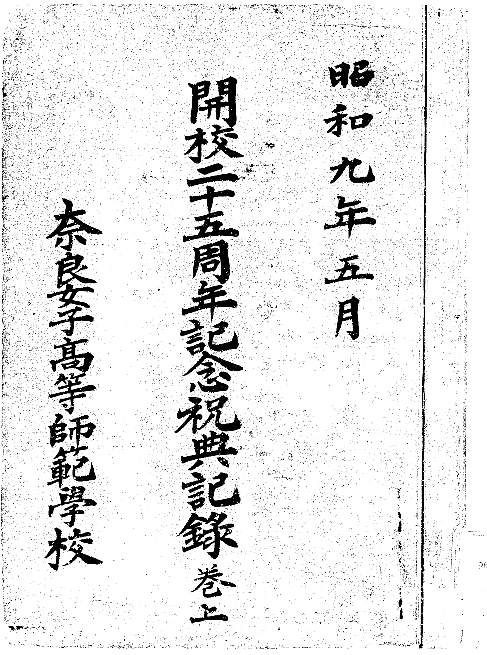 昭和九年五月
開校二十五周年記念祝典記錄 巻上
奈良女子高等師範學校